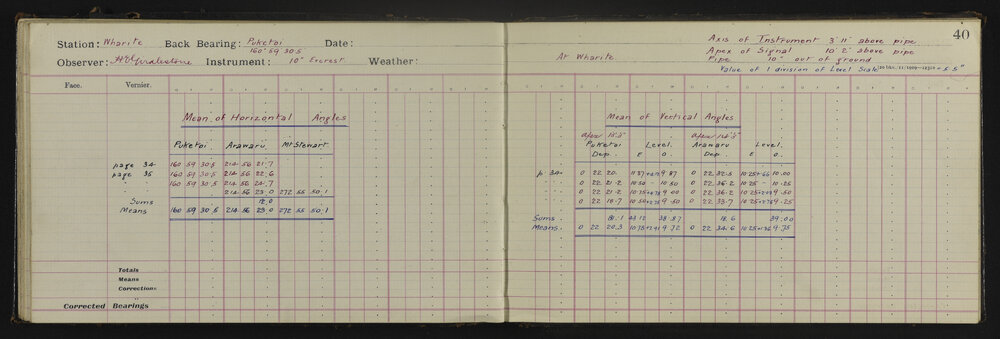 Station: Wharite Back Bearing: Puketoi Date:
160 59 30.5
Observer: Instrument: 10" Everest Weather:
Face. Vernier.
Mean of Horizontal Angles
Puketoi Arawaru Mt Stewart
page 34 160 59 30.5 214 56 21.7
page 35 160 59 30.5 214 56 22.6
160 59 30.5 214 56 24.7
214 56 23.0 272 55 50.1
Sums 12.0
Means 160 59 30.5 214 56 23.0 272 55 50.1
Totals
Means
Corrections
Corrected Bearings
40
Axis of Instrument 3' 11" above pipe
Apex of Signal 10' 2" above pipe
At Wharite Pipe 10" out of ground
Value of 1 division of Level Scale = 5.5"
Mean of Vertical Angles
Puketoi Level. Arawaru Level.
Dep. E O. Dep. E O.
p 34 0 22 20. 9.87 0 22 32.5 10.00
0 22 21.2 10.50 - 10.50 0 22 36.2 10.25 - 10.25
0 22 21.2 9.00 0 22 36.2 9.50
0 22 18.7 9.50 0 22 33.7 9.25
Sums. 81.1 43.12 38.87 18.6 39.00
Means. 0 22 20.3 9.72 0 22 34.6 9.75